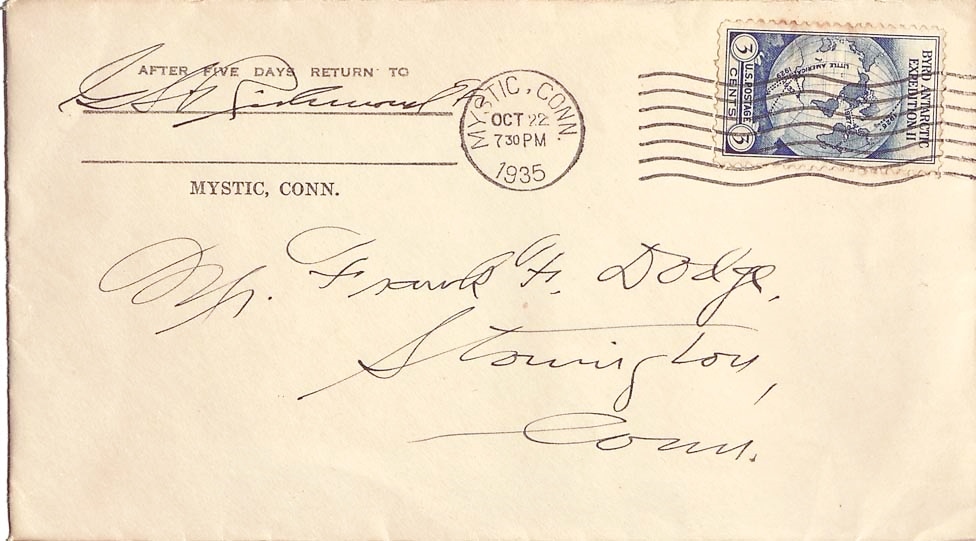 AFTER FIVE DAYS RETURN TO
Richmond
MYSTIC, CONN.
MYSTIC, CONN.
OCT 22
7 30 PM
1935
BYRD ANTARCTIC
EXPEDITION II
LITTLE AMERICA 1929
U.S. POSTAGE
3 CENTS 3
Mr. Frank F. Dodge,
Stonington,
Conn.